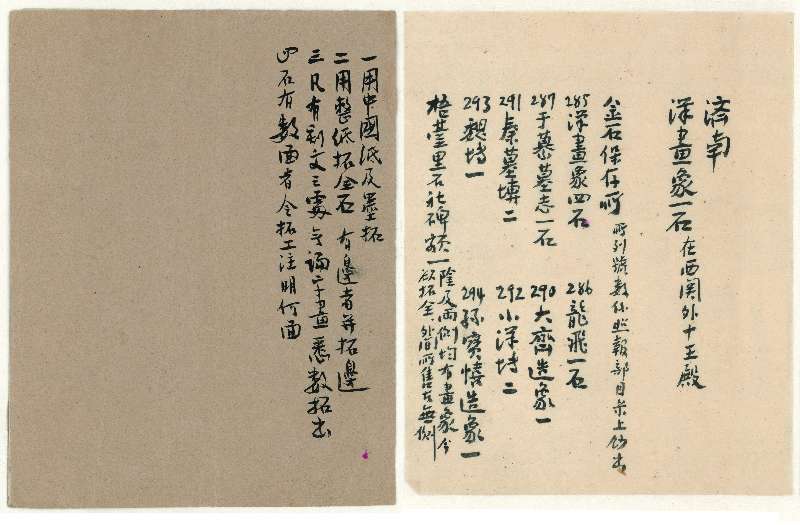 济南
汉画象一石 在西関外十王殿
金石保存所 所列號数係照報部目录上钞出
285 汉画象四石 286 龍飛一石
287 于纂墓志一石 290 大齊造象一
291 秦墓塼二 292 小汉塼二
293 魏塼一 294 孫寳憘造象一
梧䑓里石社碑额一 隂及两側均有画象 今欲拓全 所售者無側
一 用中國纸及墨拓
二 用整纸拓全石 有邊者并拓邊
三 凡有刻文之處 無論字畫悉数拓出
四 石有数面者令拓工注明何面